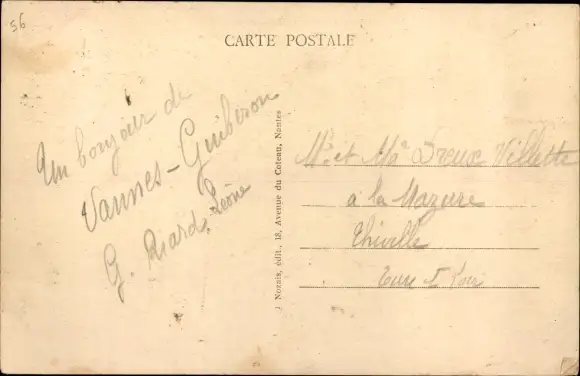 56
CARTE POSTALE
Un bonjour de
Vannes-Guiberon
G. Riard, Léone
J Nozais, édit., 18, Avenue du Coteau, Nantes
Mr et Me Dreux Villette
à la Mazure
Thiville
Eure & Loir